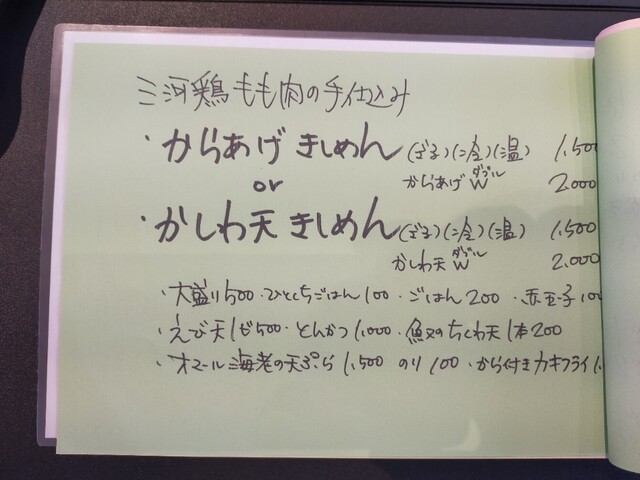 三河鶏もも肉の手仕込み
・からあげ きしめん (ざる)(冷)(温) 1,500
からあげ W ダブル 2,000
or
・かしわ天 きしめん (ざる)(冷)(温) 1,500
かしわ天 W ダブル 2,000
・大盛り500・ひとくちごはん100・ごはん200・赤玉子100
・えび天1ヶ500・とんかつ1,000・魚又のちくわ天1本200
・オマール海老の天ぷら 1,500 のり100・から付きカキフライ1,